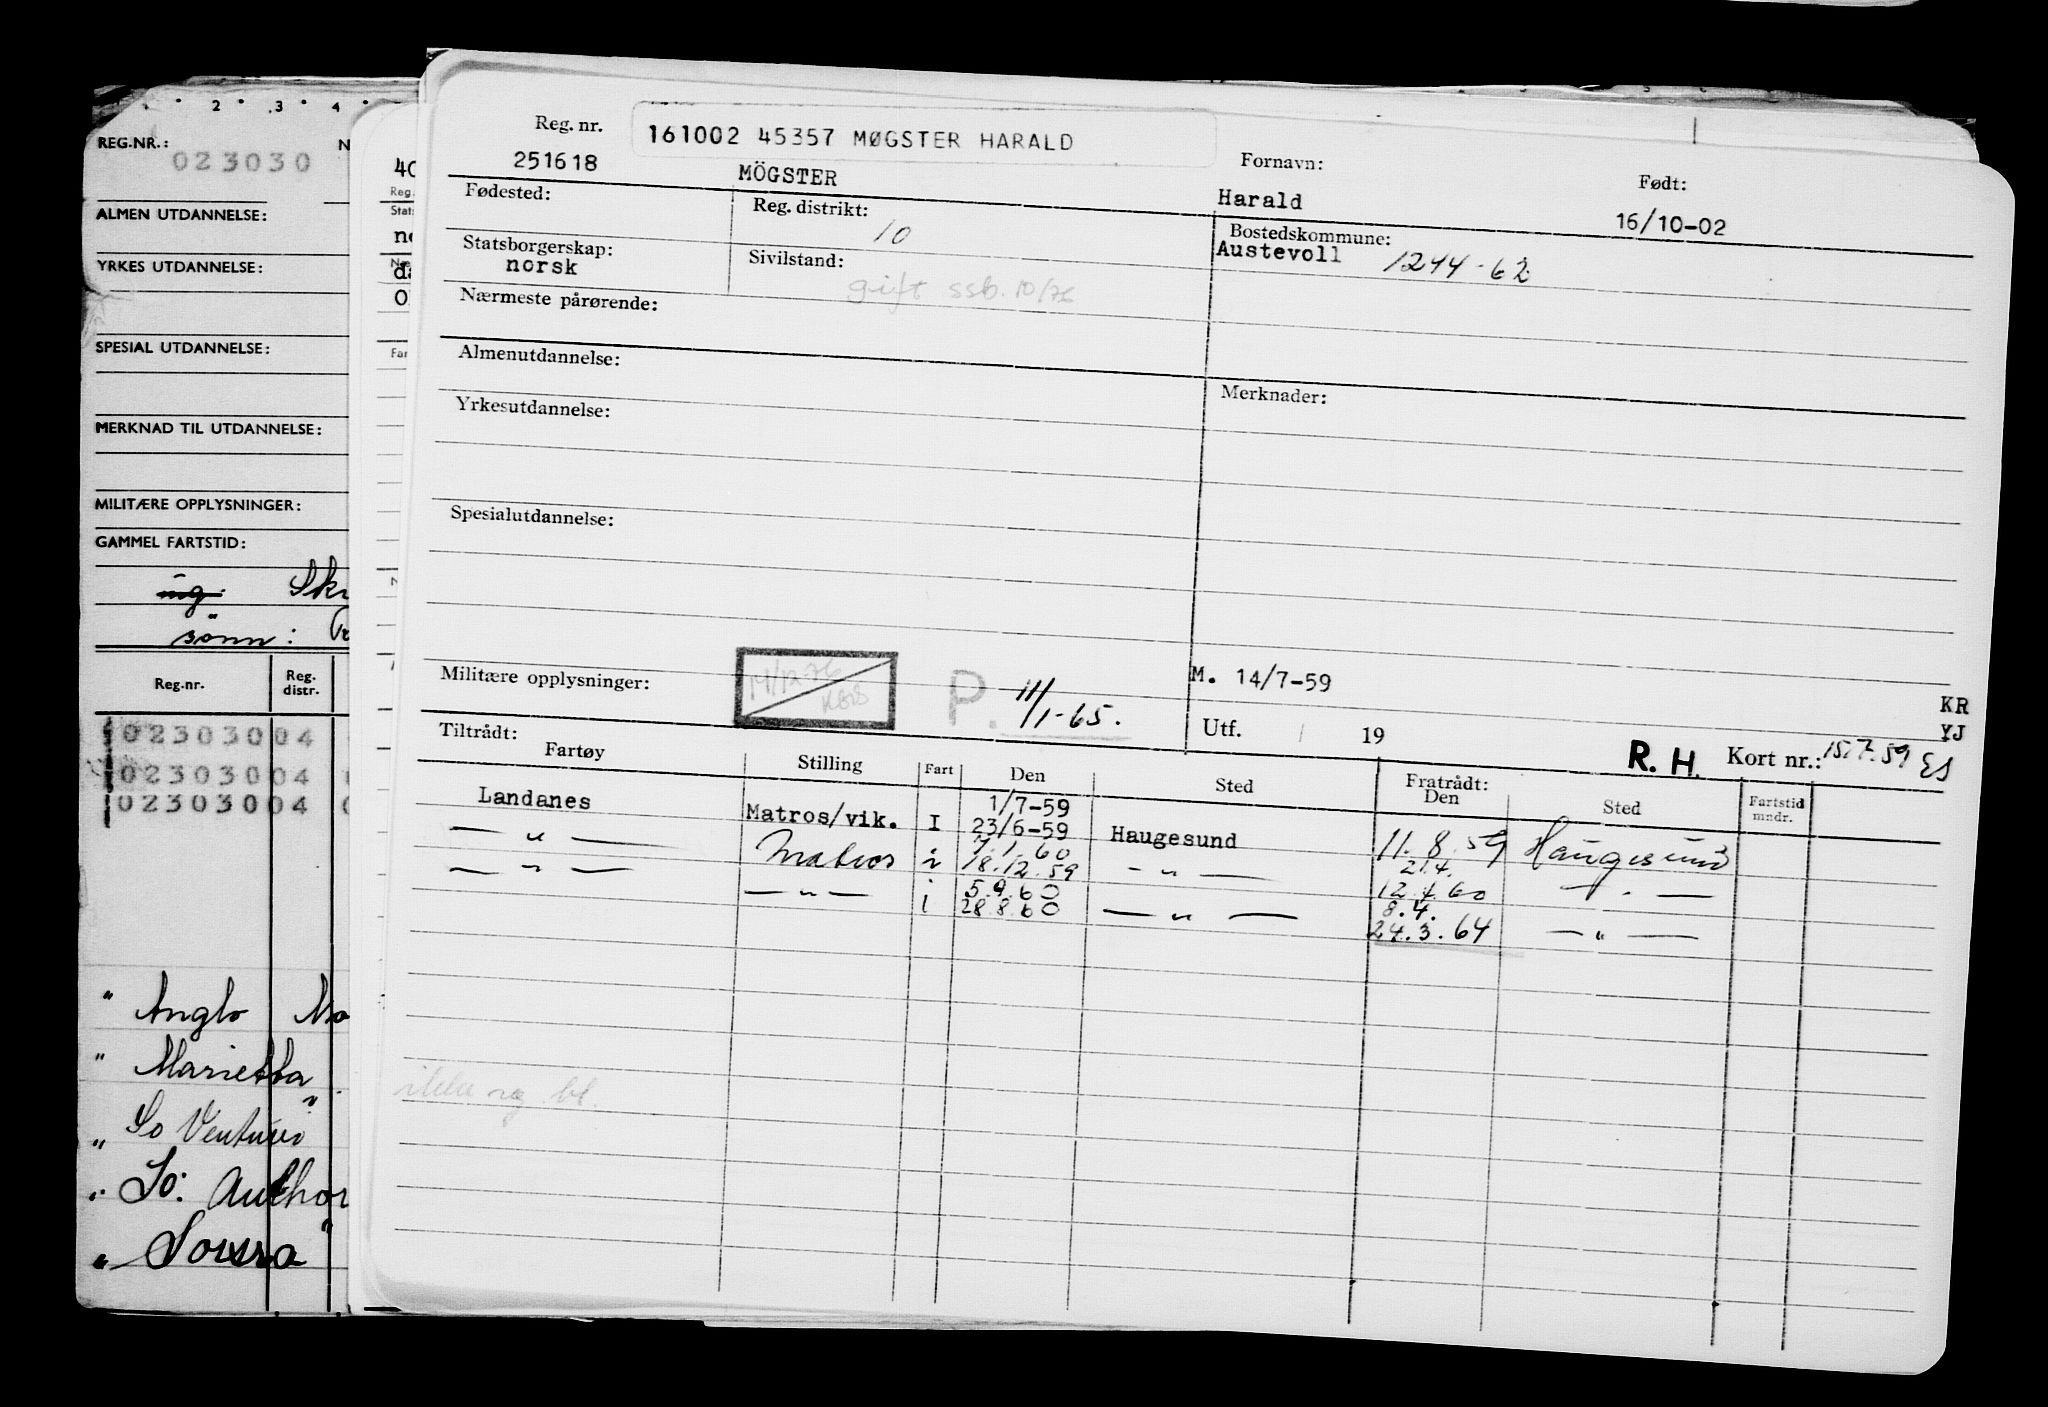 1 2 3 4
REG.NR.: N
023030
ALMEN UTDANNELSE:
YRKES UTDANNELSE:
SPESIAL UTDANNELSE:
MERKNAD TIL UTDANNELSE:
MILITÆRE OPPLYSNINGER:
GAMMEL FARTSTID:
ing. Sk
sønn:
Reg.nr. Reg. distr.
02303004
02303004
02303004
" Anglo Ma
" Marietta "
" So Venturo
" So: Author
" Sousra "
40
Reg.
Stats
no
Næ
da
Far
Reg. nr. 161002 45357 MØGSTER HARALD
251618 MÖGSTER
Fornavn: Harald
Født: 16/10-02
Fødested:
Reg. distrikt: 10
Bostedskommune: Austevoll 1244-62
Statsborgerskap: norsk
Sivilstand: gift ssb. 10/76
Nærmeste pårørende:
Almenutdannelse:
Yrkesutdannelse:
Merknader:
Spesialutdannelse:
Militære opplysninger: 14/12-76
P. 11/1-65.
M. 14/7-59
KR
YJ
Utf. / 19 R. H. Kort nr.: 15.7.59 ES
Tiltrådt: Fratrådt:
Fartøy Stilling Fart Den Sted Den Sted Fartstid mndr.
Landanes Matros/vik. I 1/7-59 23/6-59 Haugesund 11.8.59 Haugesund
— " — Matros i 7.1.60 18.12.59 — " — 21.4. 12.4.60 — " —
— " — — " — i 5.9.60 28.8.60 — " — 8.4. 24.3.64 — " —